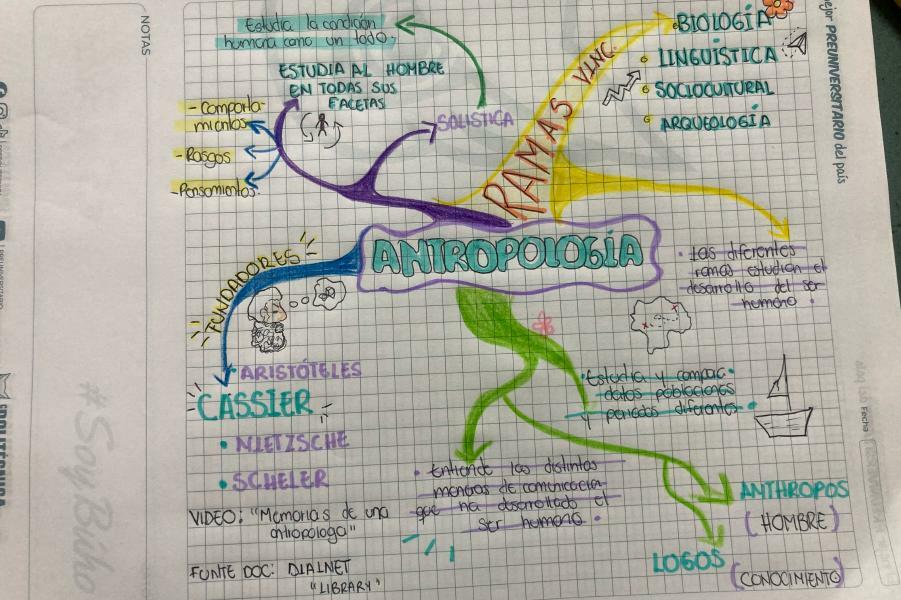 NOTAS
Estudia la condición
humana como un todo.
ESTUDIA AL HOMBRE
EN TODAS SUS
FACETAS
- Comporta-
mientos
- Rasgos
- Pensamientos
SOLISTICA
RAMAS VINC.
BIOLOGÍA
LINGUÍSTICA
SOCIOCULTURAL
ARQUEOLOGÍA
PREUNIVERSITARIO del país
ANTROPOLOGÍA
• Las diferentes
ramas estudian el
desarrollo del ser
humano.
FUNDADORES
• ARISTÓTELES
CASSIER
• NIETZSCHE
• SCHELER
VIDEO: "Memorias de una
antropologa"
FUNTE DOC: DIALNET
"LIBRARY"
• Estudia y compac.
datos poblaciones
y periodos diferentes.
• Entiende las distintas
maneras de comunicación
que ha desarrollado el
ser humano.
ANTHROPOS
(HOMBRE)
LOGOS
(CONOCIMIENTO)
Fecha
#SoyBúho